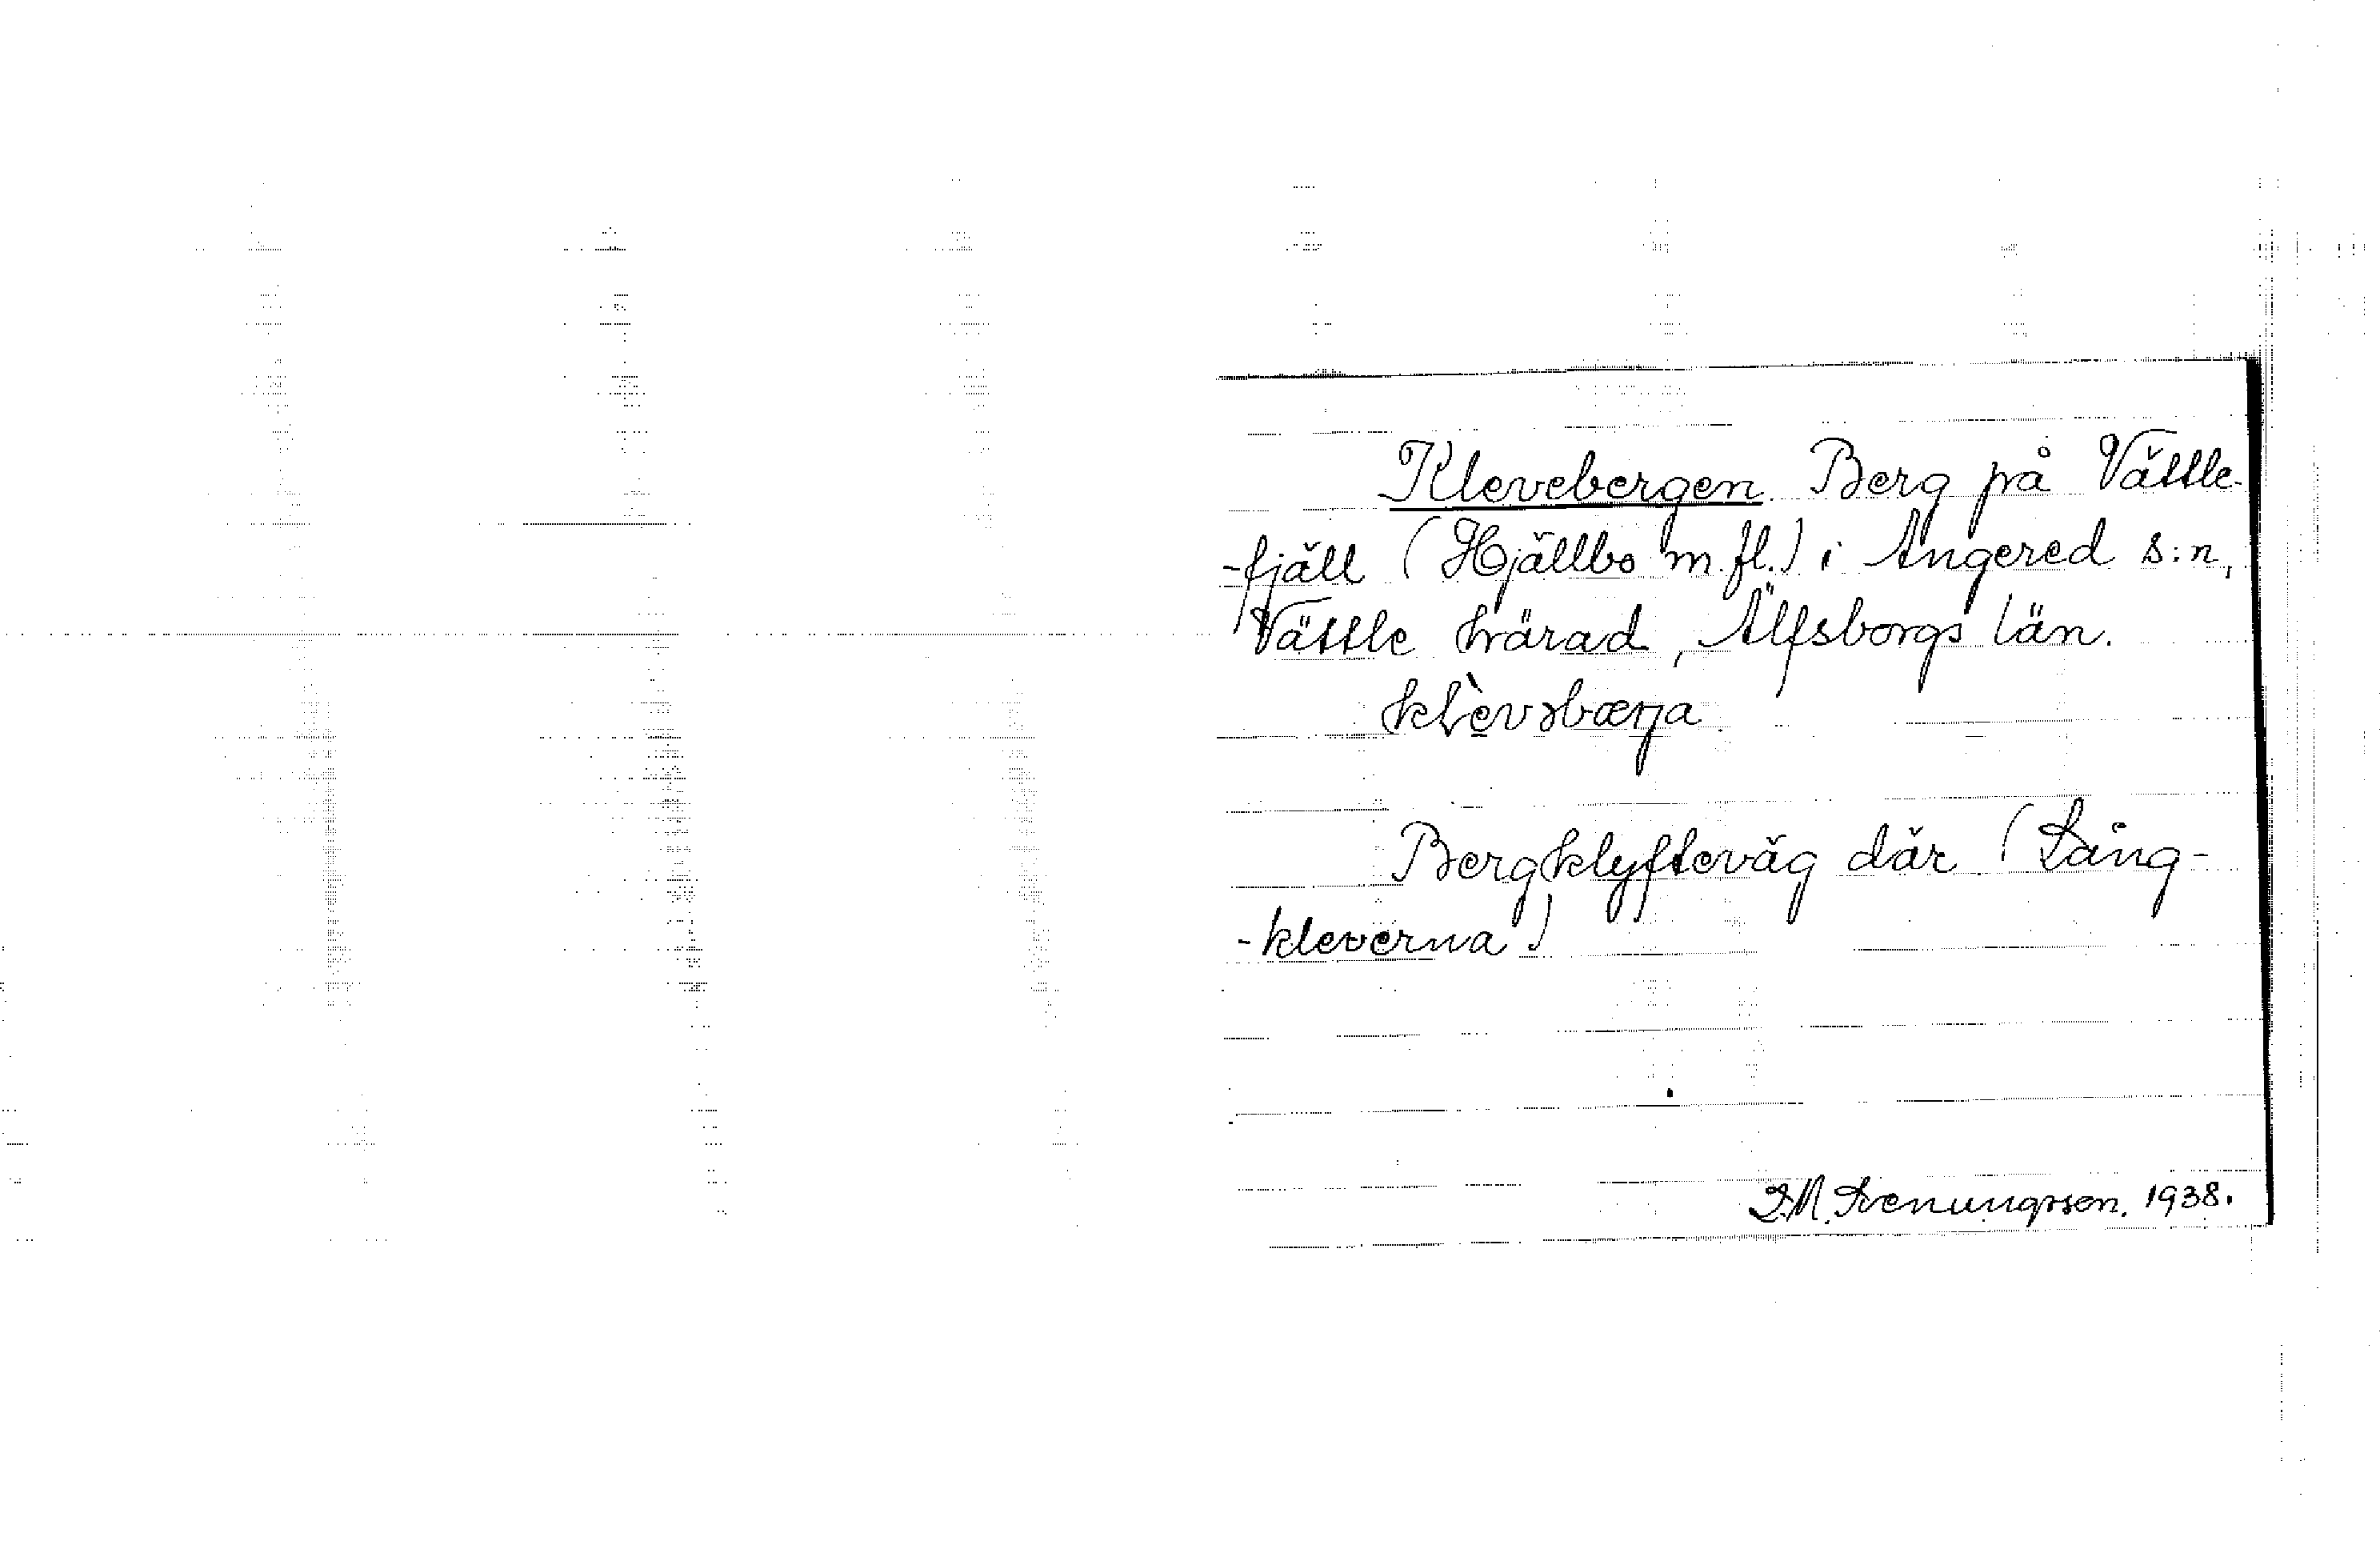 Klevebergen. Berg på Vättle-
-fjäll (Hjällbo m. fl.) i Angered s:n,
Vättle härad, Älfsborgs län.
klèvəbærja
Bergklyfteväg där (Lång-
-kleverna)
1938.